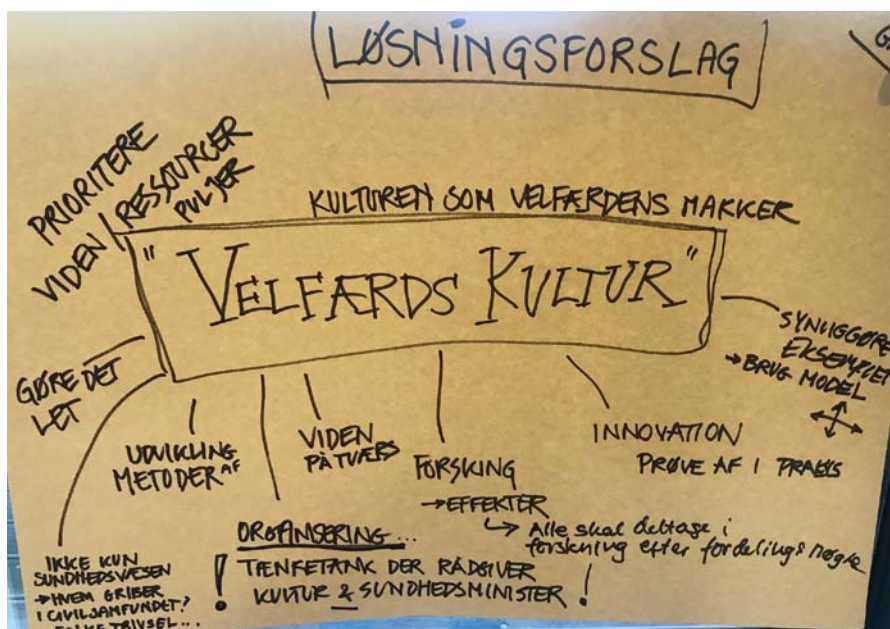 LØSNINGSFORSLAG
PRIORITERE
VIDEN / RESSOURCER
PULJER
KULTUREN SOM VELFÆRDENS MAKKER
"VELFÆRDS KULTUR"
GØRE DET
LET
UDVIKLING
METODER AF
VIDEN
PÅ TVÆRS
FORSKING
→ EFFEKTER
↳ Alle skal deltage i
forskning efter fordelings nøgle
INNOVATION
PRØVE AF I PRAKSIS
SYNLIGGØRE
EKSEMPLET
→ BRUG MODEL
ORGANISERING...
TÆNKETANK DER RÅDGIVER
KULTUR & SUNDHEDSMINISTER !
IKKE KUN
SUNDHEDSVÆSEN
→ HVEM GRIBER
I CIVILSAMFUNDET?
TRIVSEL...
!